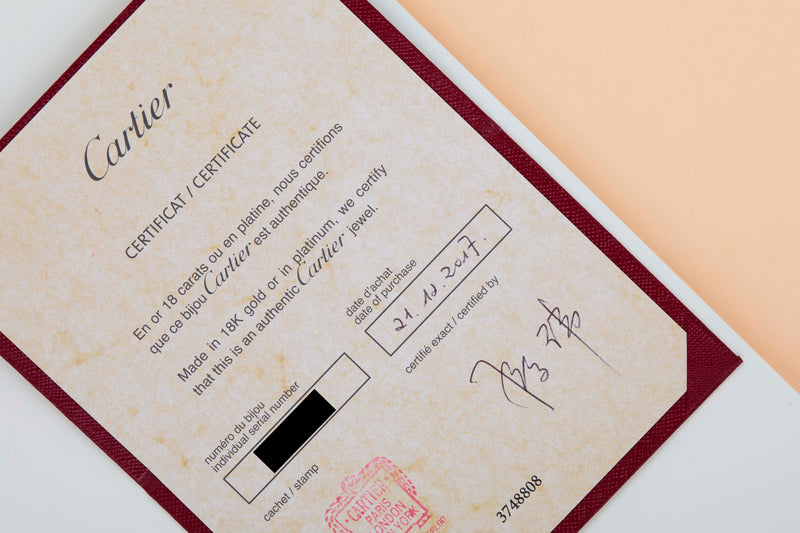 Cartier
CERTIFICAT / CERTIFICATE
En or 18 carats ou en platine, nous certifions
que ce bijou Cartier est authentique.
Made in 18K gold or in platinum, we certify
that this is an authentic Cartier jewel.
date d'achat
date of purchase
21.12.2017.
certifié exact / certified by
numéro du bijou
individual serial number
cachet / stamp
CARTIER
PARIS
LONDON
3748808